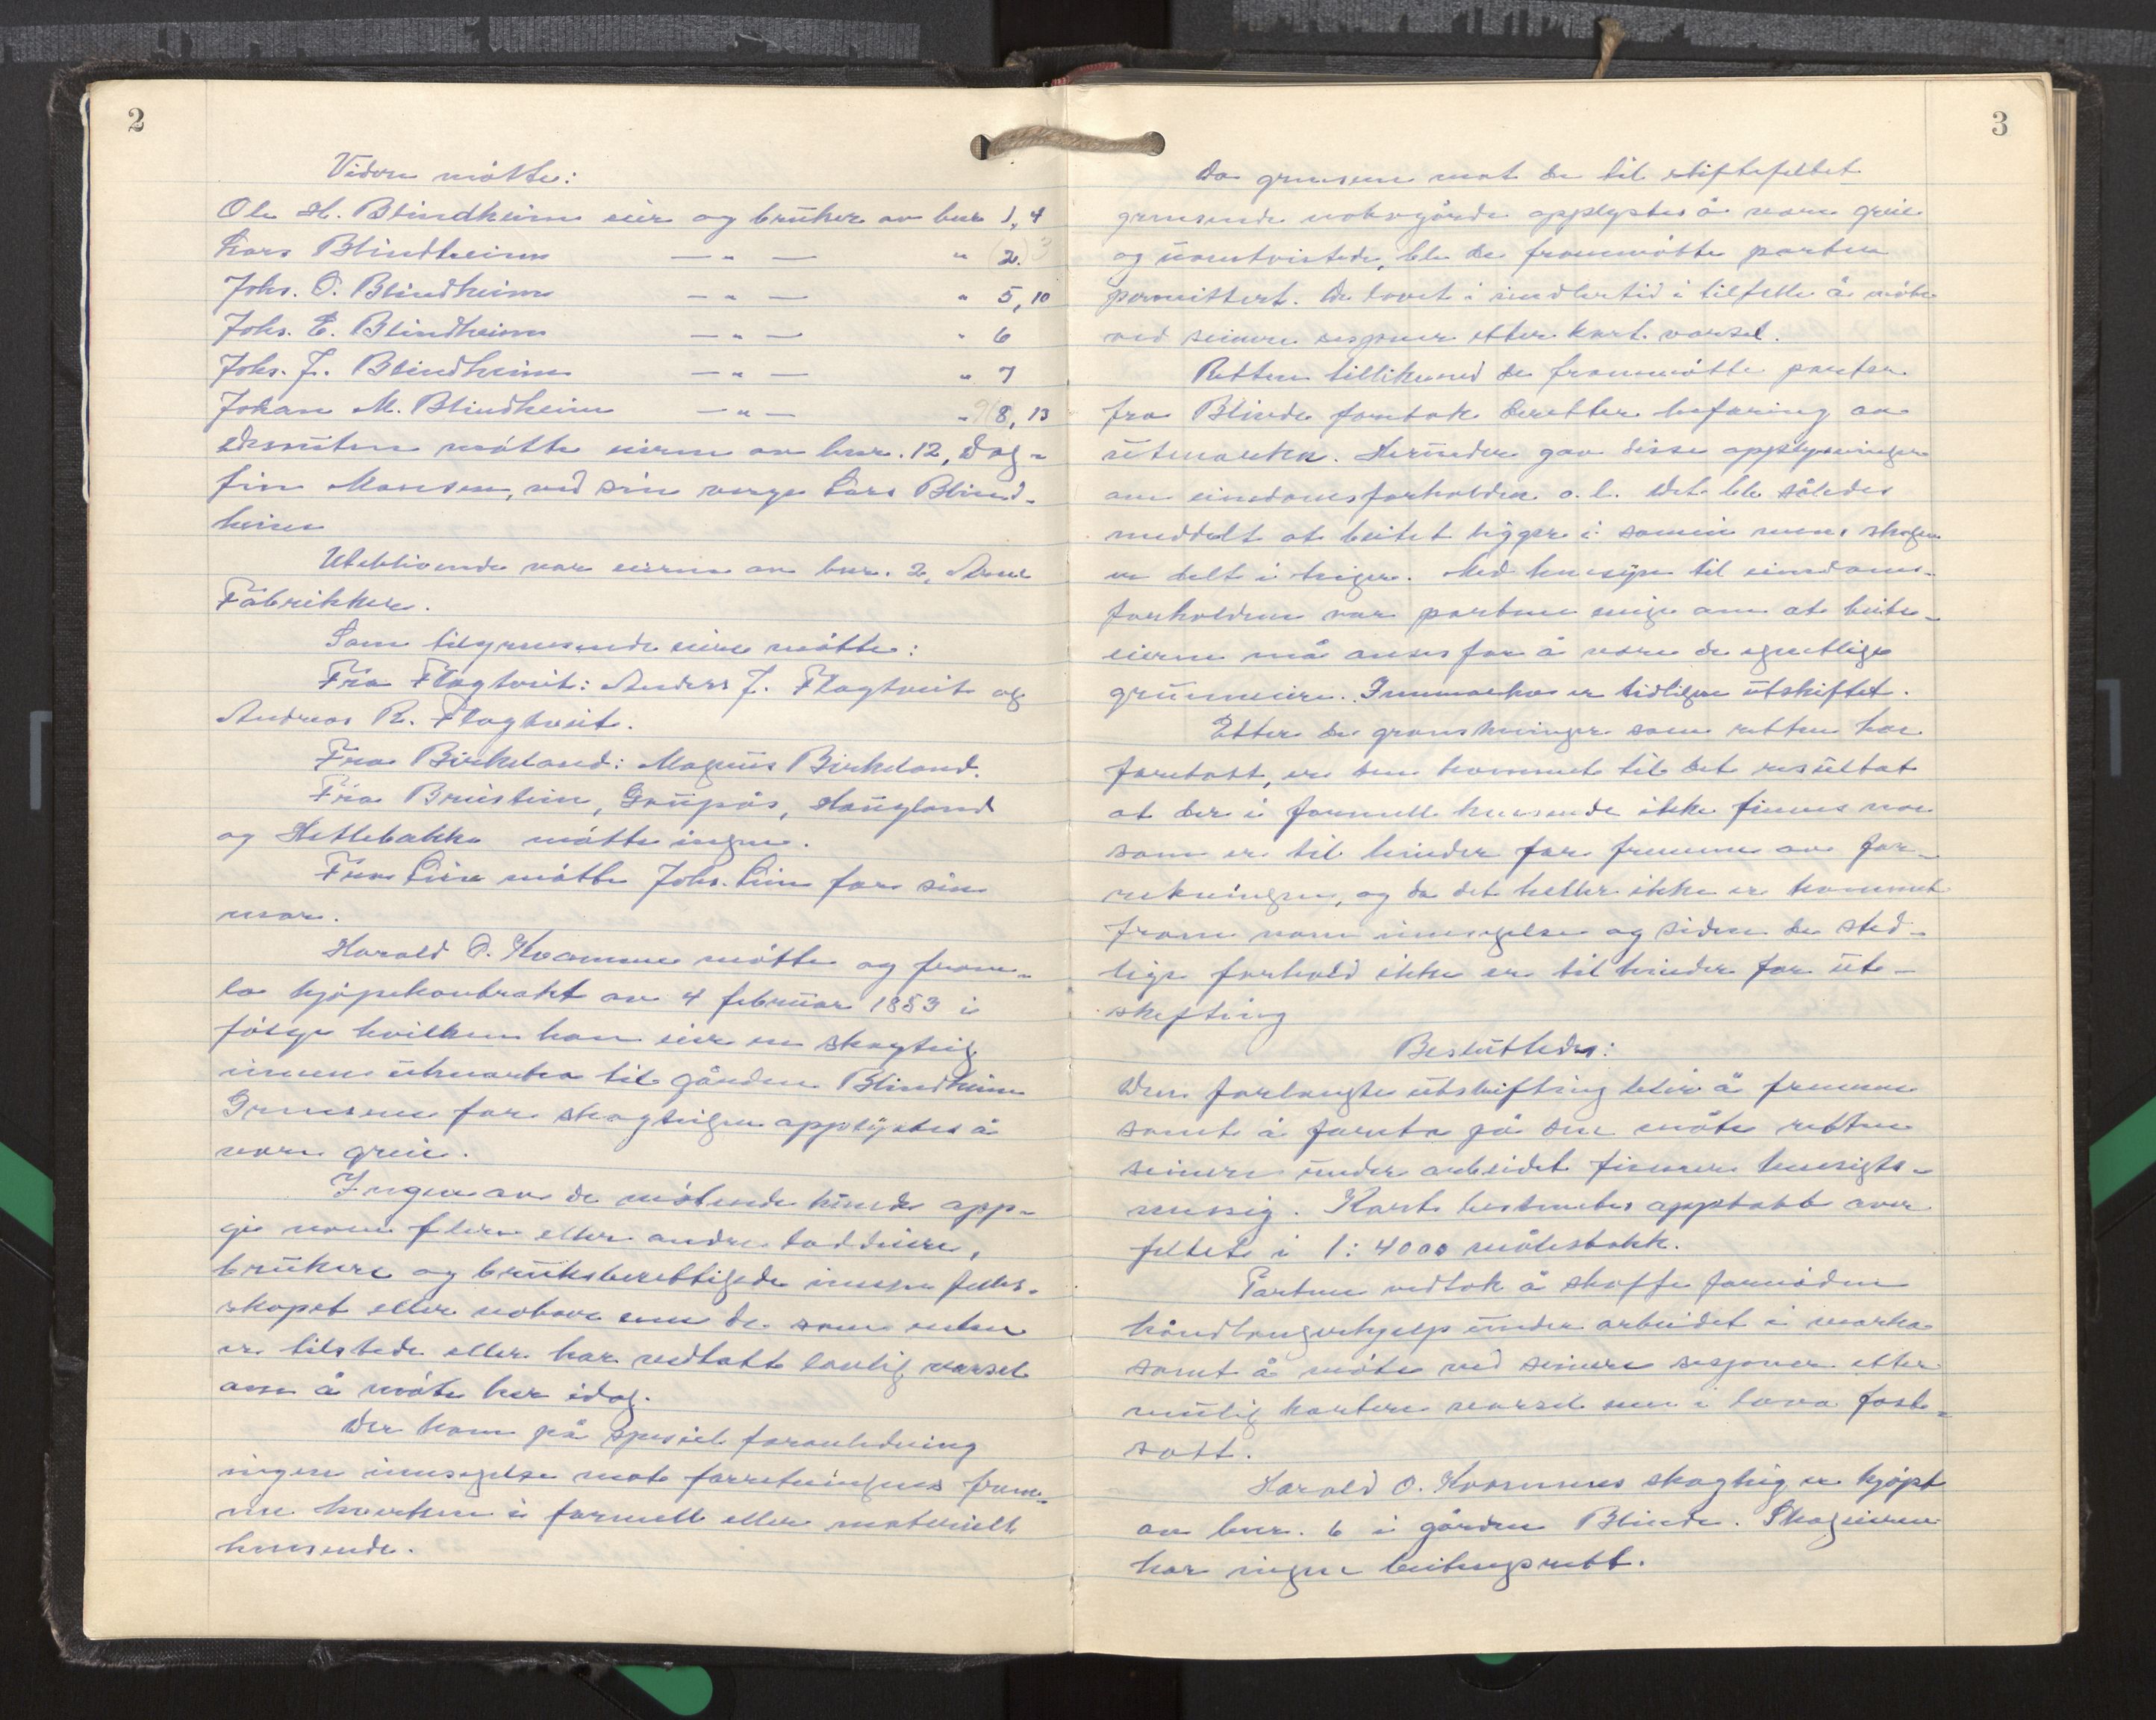 2
Videre møtte:
Ole H. Blindheim eier og bruker av bnr 1, 4
Lars Blindheim — " — " (2.) 3
Johs. O. Blindheim — " — " 5, 10
Johs. E. Blindheim — " — " 6
Johs. J. Blindheim — " — " 7
Johan M. Blindheim — " — " 8, 13
Desuten møtte eieren av bnr. 12, Dag-
fin Monsen, ved sin verge Lars Blind-
heim
Uteblivende var eieren av bnr. 2, Arne
Fabrikker.
Som tilgrensende eiere møtte:
Fra Flagtveit: Anders J. Flagtveit og
Andreas R. Flagtveit.
Fra Birkeland: Magnus Birkeland.
Fra Brustein, Gaupås, Haugland
og Hetlebakka møtte ingen.
Fra Lien møtte Johs. Lien for sin
mor.
Harald O. Kvamme møtte og frem-
la kjøpekontrakt av 4 februar 1853 i
følge hvilken han eier en skogteig
innen utmarka til gården Blindheim
Grensene for skogteigen opplystes å
være greie.
Ingen av de møtende kunde opp-
gi noen flere eller andre loddeiere,
brukere og bruksberettigede innen felles-
skapet eller naboer enn de som enten
er tilstede eller har vedtatt lovlig varsel
om å møte her idag.
Der kom på spesiel foranledning
ingen innsigelse mot forretningens frem-
me hverken i formell eller materiell
henseende.
3
Da grensene mot de til skiftefeltet
grensende nabogårde opplystes å være greie
og uomtvistede, ble de frammøtte parter
permittert. De lovet i imidlertid i tilfelle å møte
ved seinere sesjoner etter kort varsel.
Retten tillikemed de frammøtte parter
fra Blinde foretok deretter befaring av
utmarka. Herunder gav disse opplysninger
om eiendomsforholdene o. l. Det ble således
meddelt at beitet ligger i sameie mens skogen
er delt i teiger. Med hensyn til eiendoms-
forholdene var partene enige om at beite-
eierne må anses for å være de egentlige
grunneiere. Innmarka er tidligere utskiftet.
Etter de granskninger som retten har
foretatt, er den kommet til det resultat
at der i formell henseende ikke finnes noe
som er til hinder for fremme av for-
retningen, og da det heller ikke er kommet
fram noen innsigelse og siden de sted-
lige forhold ikke er til hinder for ut-
skifting
Besluttedes:
Den forlangte utskifting blir å fremme
samt å foreta på den måte retten
seinere under arbeidet finner hensigts-
messig. Kart bestemtes opptatt over
feltet i 1:4000 målestokk.
Partene vedtok å skaffe fornøden
håndlangerhjelp under arbeidet i marka
samt å møte ved seinere sesjoner etter
mulig kortere varsel enn i lova fast-
satt.
Harald O. Kvammes skogteig er kjøpt
av bnr. 6 i gården Blinde. Skogeieren
har ingen beitingsrett.